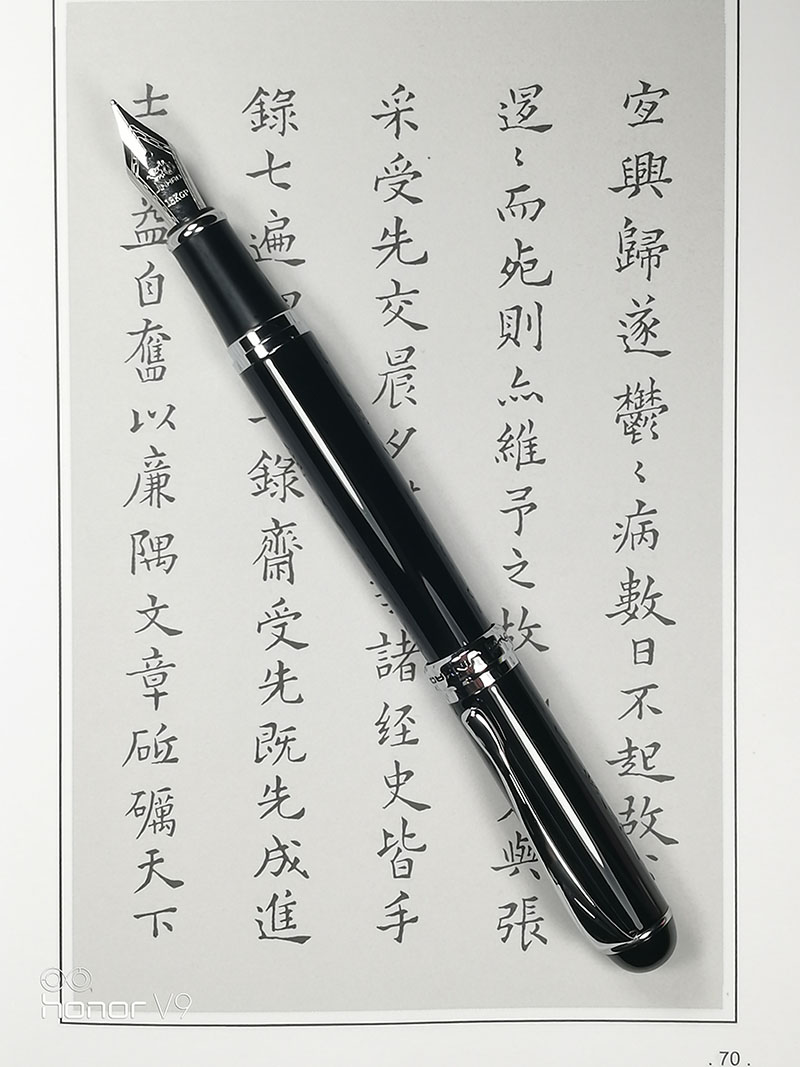 宜興歸遂鬱〻病數日不起故
〻而死則亦維予之故 與張
采受先交晨夕 諸経史皆手
錄七遍 錄齋受先既先成進
士 益自奮以廉隅文章砥礪天下
18KGP
honor V9
. 70 .